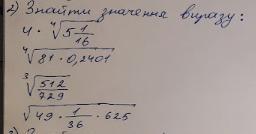 2) Знайти значення виразу:
4 · ∜(5 1/16)
∜(81 · 0,2401)
∛(512/729)
√(49 · 1/36 · 625)